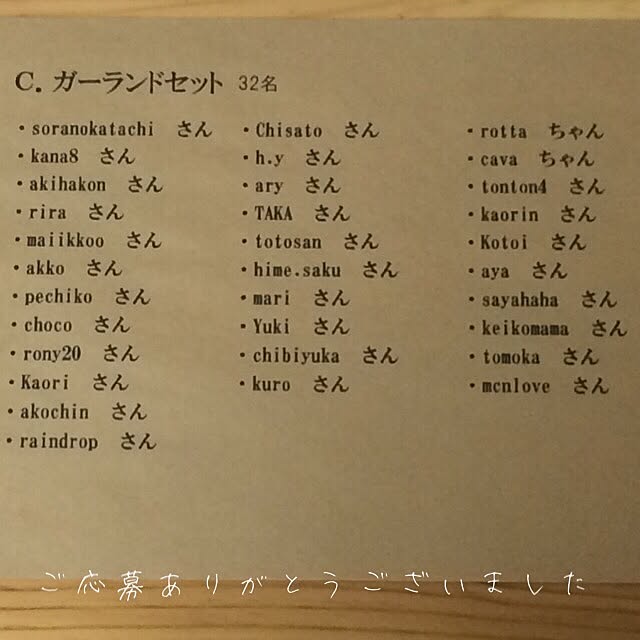 C. ガーランドセット 32名
・soranokatachi さん
・kana8 さん
・akihakon さん
・rira さん
・maiikkoo さん
・akko さん
・pechiko さん
・choco さん
・rony20 さん
・Kaori さん
・akochin さん
・raindrop さん
・Chisato さん
・h.y さん
・ary さん
・TAKA さん
・totosan さん
・hime.saku さん
・mari さん
・Yuki さん
・chibiyuka さん
・kuro さん
・rotta ちゃん
・cava ちゃん
・tonton4 さん
・kaorin さん
・Kotoi さん
・aya さん
・sayahaha さん
・keikomama さん
・tomoka さん
・mcnlove さん
ご応募ありがとうございました